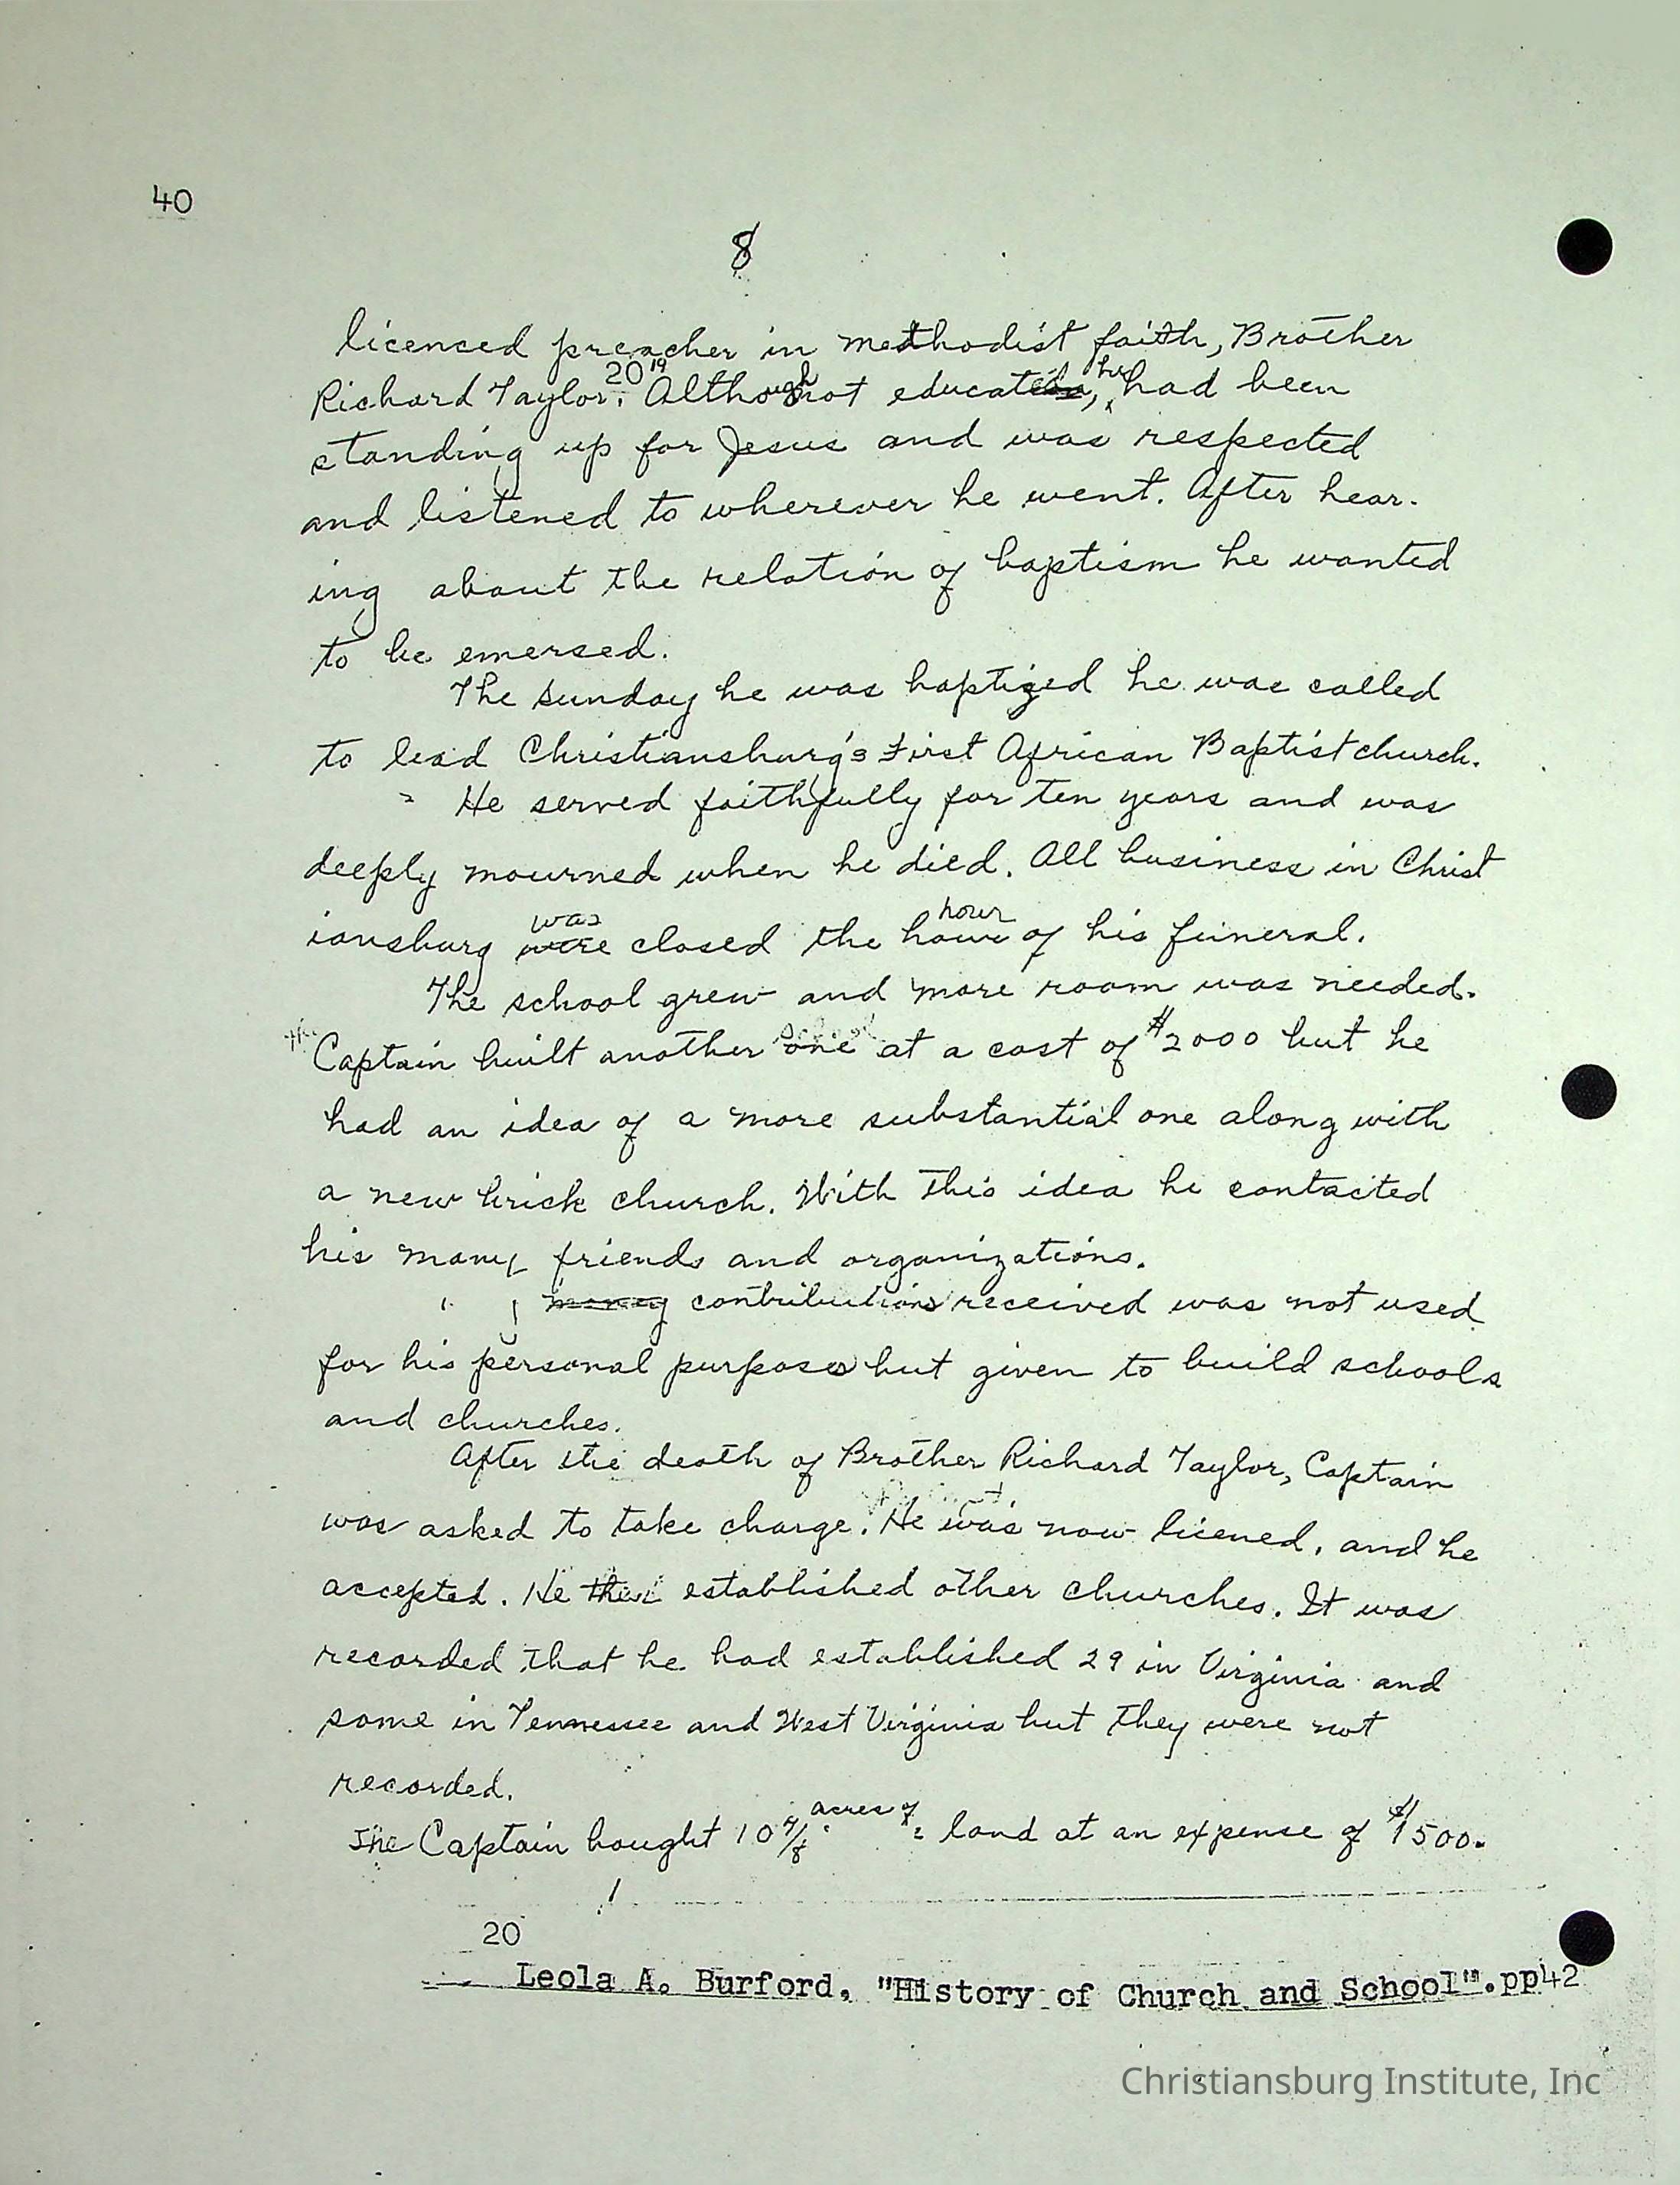 40
8
licenced preacher in methodist faith, Brother
20 19
Richard Taylor. Although not educated, he had been
standing up for Jesus and was respected
and listened to wherever he went. After hear-
ing about the relation of baptism he wanted
to be emersed.
The Sunday he was baptized he was called
to lead Christiansburg's First African Baptist church.
He served faithfully for ten years and was
deeply mourned when he died. All business in Christ
was hour
iansburg were closed the hour of his funeral.
The school grew and more room was needed.
the school
Captain built another one at a cost of $2000 but he
had an idea of a more substantial one along with
a new brick church. With this idea he contacted
his many friends and organizations.
money contributions received was not used
for his personal purposes but given to build schools
and churches.
After the death of Brother Richard Taylor, Captain
was asked to take charge. He was now licened, and he
accepted. He then established other churches. It was
recorded that he had established 29 in Virginia and
some in Tennessee and West Virginia but they were not
recorded.
acres of
The Captain bought 10 4/8 land at an expense of $1500.
20
Leola A. Burford, "History of Church and School".pp42
Christiansburg Institute, Inc